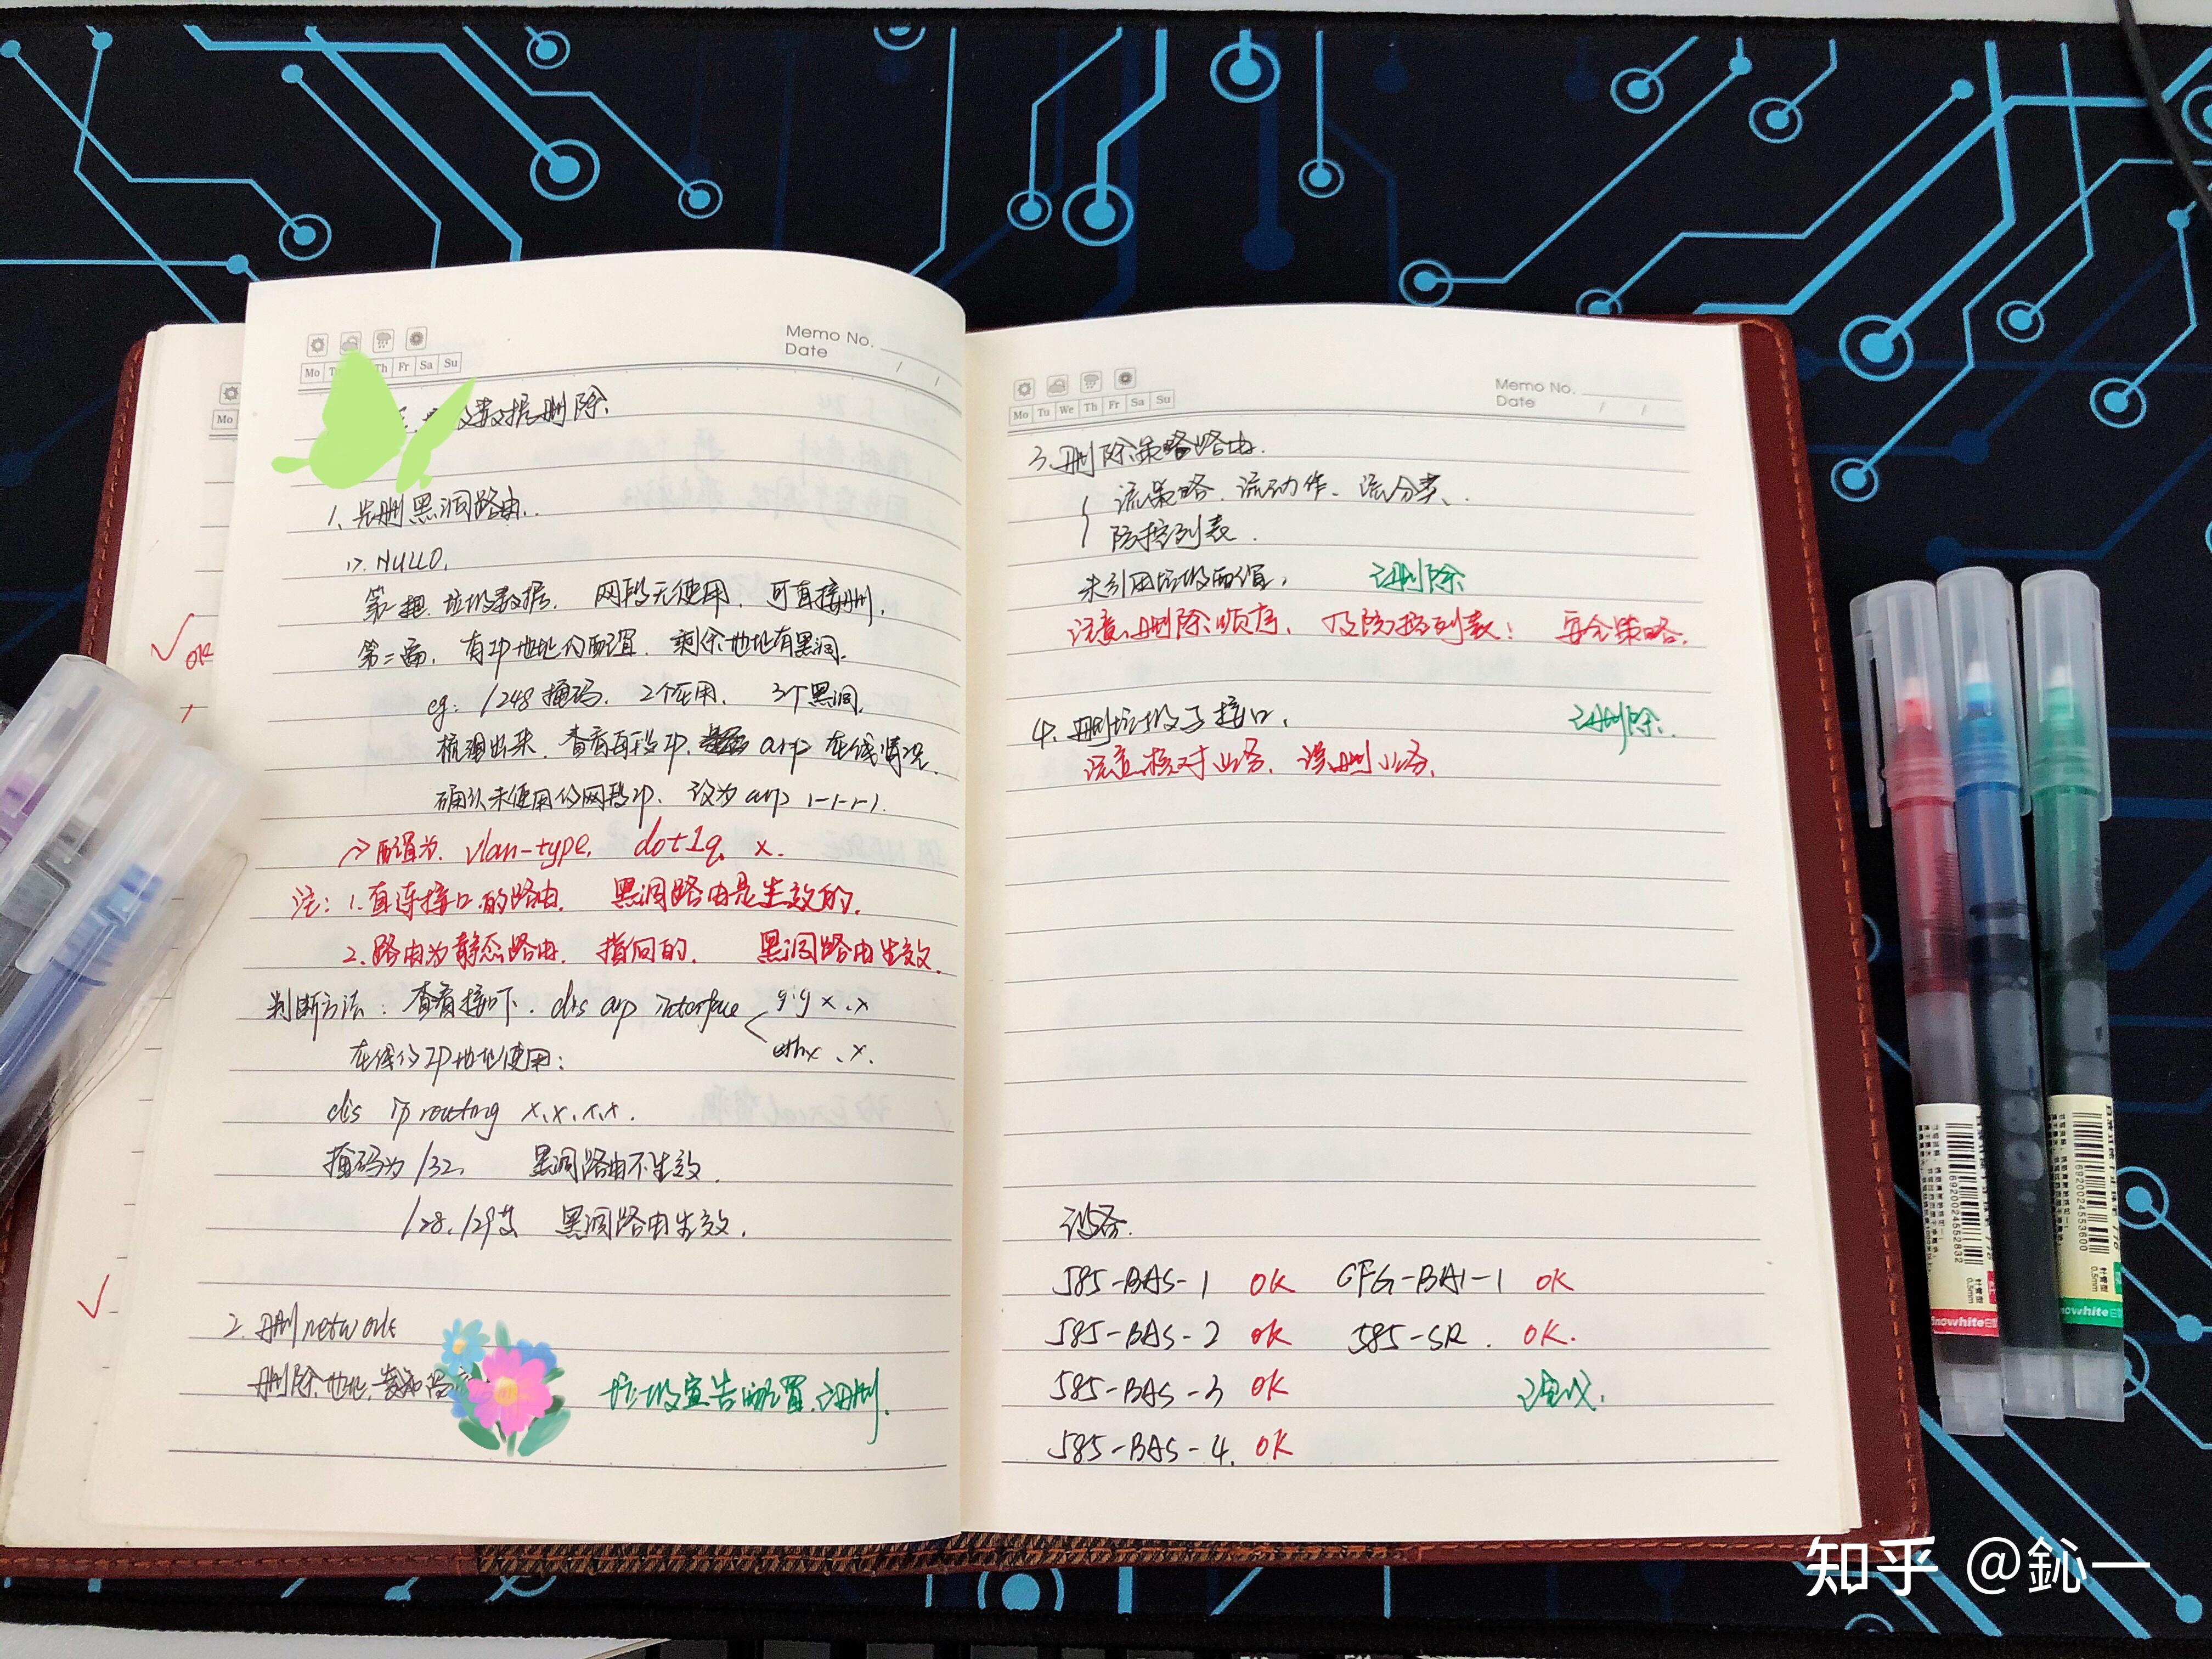 Memo No.
Date
Mo Th Fr Sa Su
垃圾数据删除.
1. 先删黑洞路由.
1>. NULL0.
第一种. 垃圾数据. 网段无使用. 可直接删.
第二面. 有IP地址的配置. 剩余地址有黑洞.
eg: /248 掩码. 2个在用. 3个黑洞.
梳理出来. 查看每段IP. arp 在线情况.
确认未使用的网段IP. 设为 arp 1-1-1-1.
配置为. vlan-type. dot1q. x.
注: 1. 直连接口的路由. 黑洞路由是生效的.
2. 路由为静态路由. 指向的. 黑洞路由生效.
判断方法: 查看接口下. dis arp interface gig x.x
ethx.x.
在线的IP地址使用:
dis ip routing x.x.x.x.
掩码为 /32. 黑洞路由不生效.
/28. /29等 黑洞路由生效.
2. 删network
删除地址. 垃圾宣告的配置. 已删.
OK
Mo
Memo No.
Date
Mo Tu We Th Fr Sa Su
3. 删除策略路由.
流策略. 流动作. 流分类.
防控列表.
未引用垃圾配置. 已删除
注意. 删除顺序. 及防控列表! 安全策略.
4. 删垃圾子接口. 已删除.
注意核对业务. 误删业务.
设备.
585-BAS-1 OK CFG-BAI-1 OK
585-BAS-2 OK 585-SR. OK.
585-BAS-3 OK
585-BAS-4. OK
6920024552832
6920024553600
0.5mm
Snowhite
nowhite
知乎 @鈊一